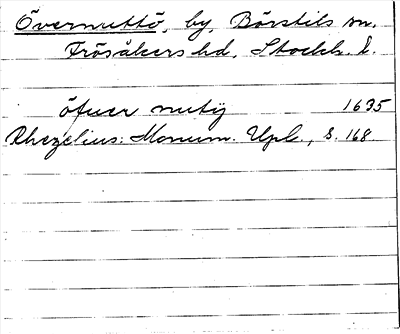 Övernuttö, by, Börstils sn,
Frösåkers hd, Stockh. l.
öfuer nutÿ 1635
Rhezelius: Monum. Upl., s. 168